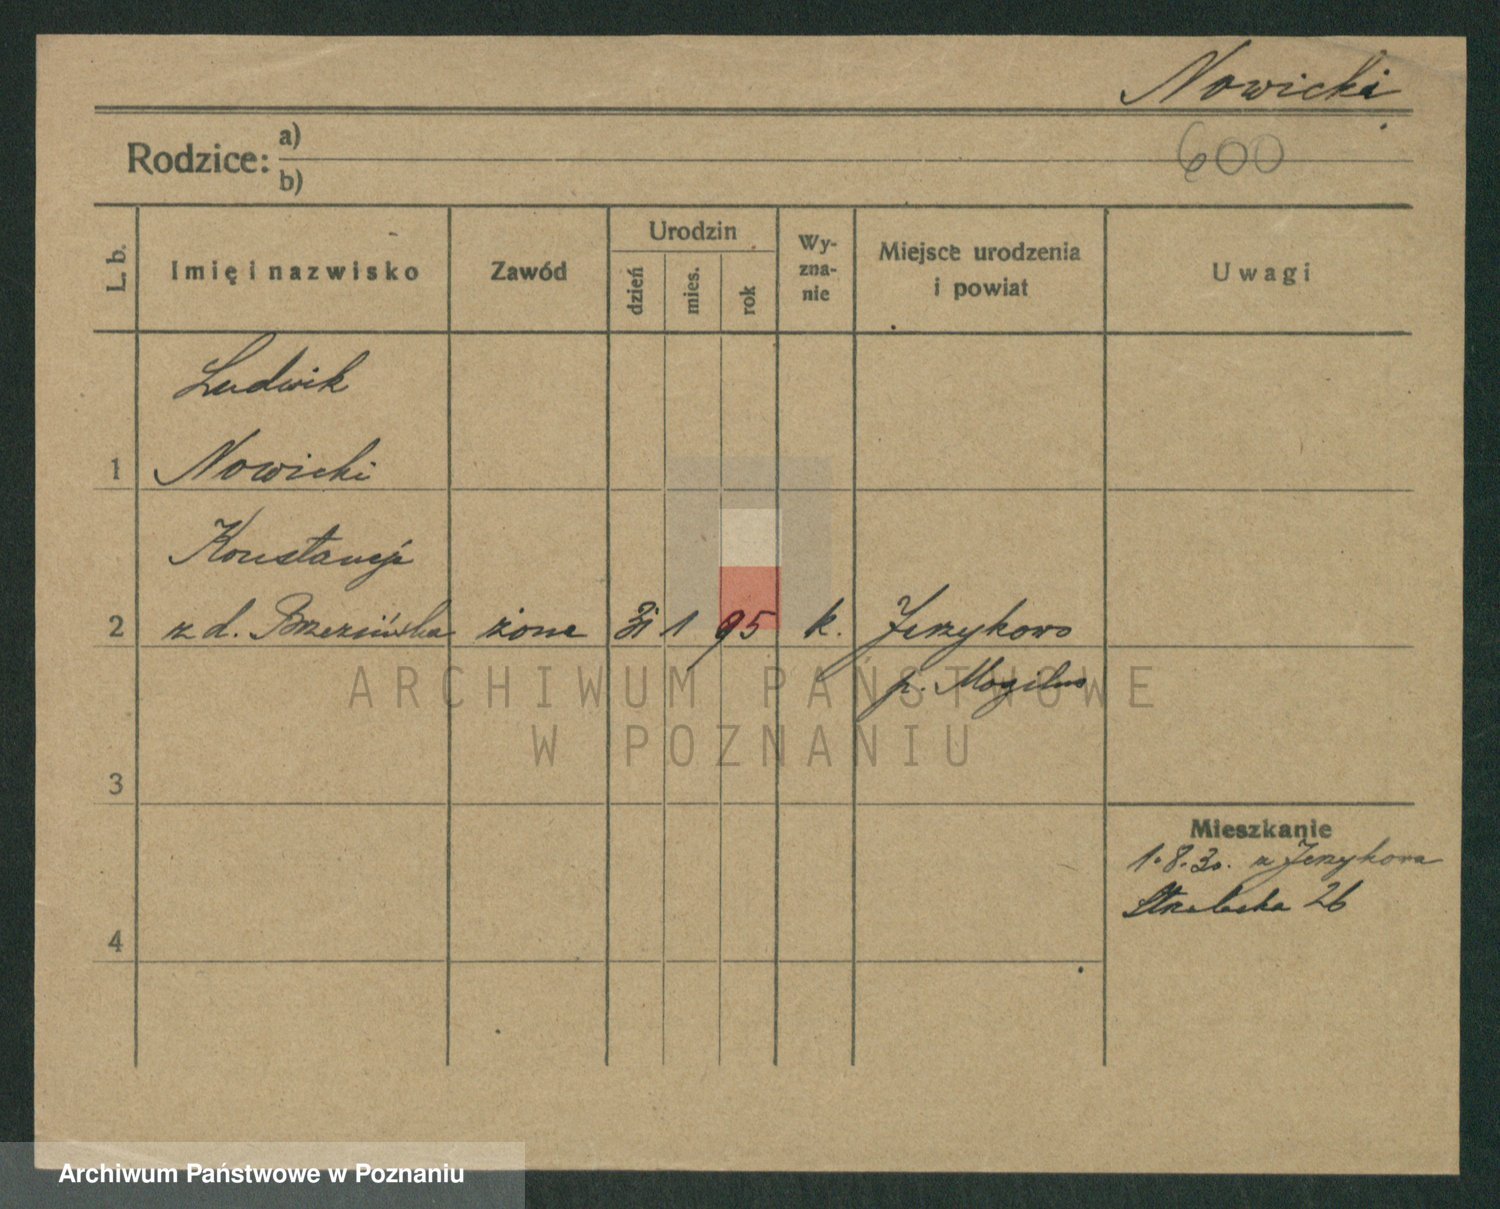 Nowicki
600
Rodzice: a)
b)
L. b.
Imię i nazwisko
Zawód
Urodzin
dzień
mies.
rok
Wy-
zna-
nie
Miejsce urodzenia
i powiat
Uwagi
Ludwik
1 Nowicki
Konstancja
2 z d. Brzezińska żona 31 1 95 k. Jerzykowo
p. Mogilno
ARCHIWUM PAŃSTWOWE
W POZNANIU
3
Mieszkanie
1.8.30. z Jerzykowa
Strzelecka 26
4
Archiwum Państwowe w Poznaniu